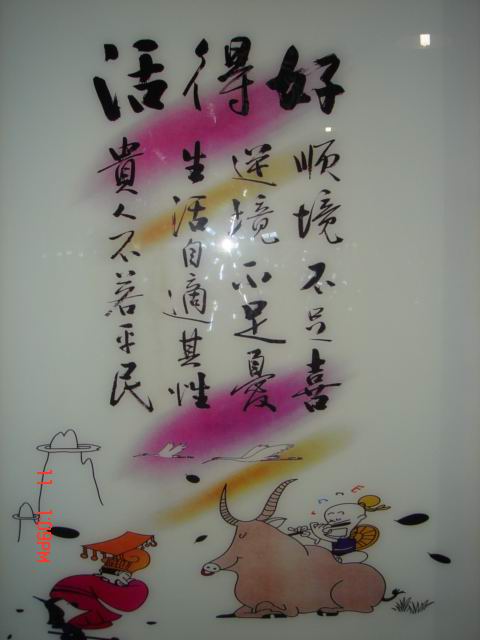 活得好
顺境不足喜
逆境不足憂
生活自適其性
貴人不若平民
11 1:09PM